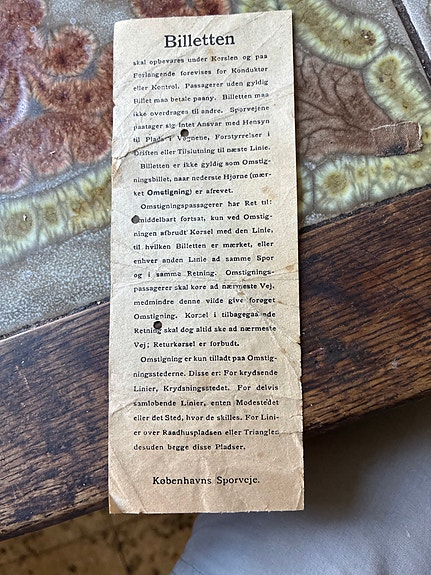 Billetten
skal opbevares under Kørslen og paa
Forlangende forevises for Konduktør
eller Kontrol. Passagerer uden gyldig
Billet maa betale paany. Billetten maa
ikke overdrages til andre. Sporvejene
paatager sig intet Ansvar med Hensyn
til Plads i Vognene, Forstyrrelser i
Driften eller Tilslutning til næste Linie.
Billetten er ikke gyldig som Omstig-
ningsbillet, naar nederste Hjørne (mær-
ket Omstigning) er afrevet.
Omstigningspassagerer har Ret til:
umiddelbart fortsat, kun ved Omstig-
ningen afbrudt Kørsel med den Linie,
til hvilken Billetten er mærket, eller
enhver anden Linie ad samme Spor
og i samme Retning. Omstignings-
passagerer skal køre ad nærmeste Vej,
medmindre denne vilde give forøget
Omstigning. Kørsel i tilbagegaaende
Retning skal dog altid ske ad nærmeste
Vej; Returkørsel er forbudt.
Omstigning er kun tilladt paa Omstig-
ningsstederne. Disse er: For krydsende
Linier, Krydsningsstedet. For delvis
samløbende Linier, enten Mødestedet
eller det Sted, hvor de skilles. For Lini-
er over Raadhuspladsen eller Trianglen
desuden begge disse Pladser.
Københavns Sporveje.